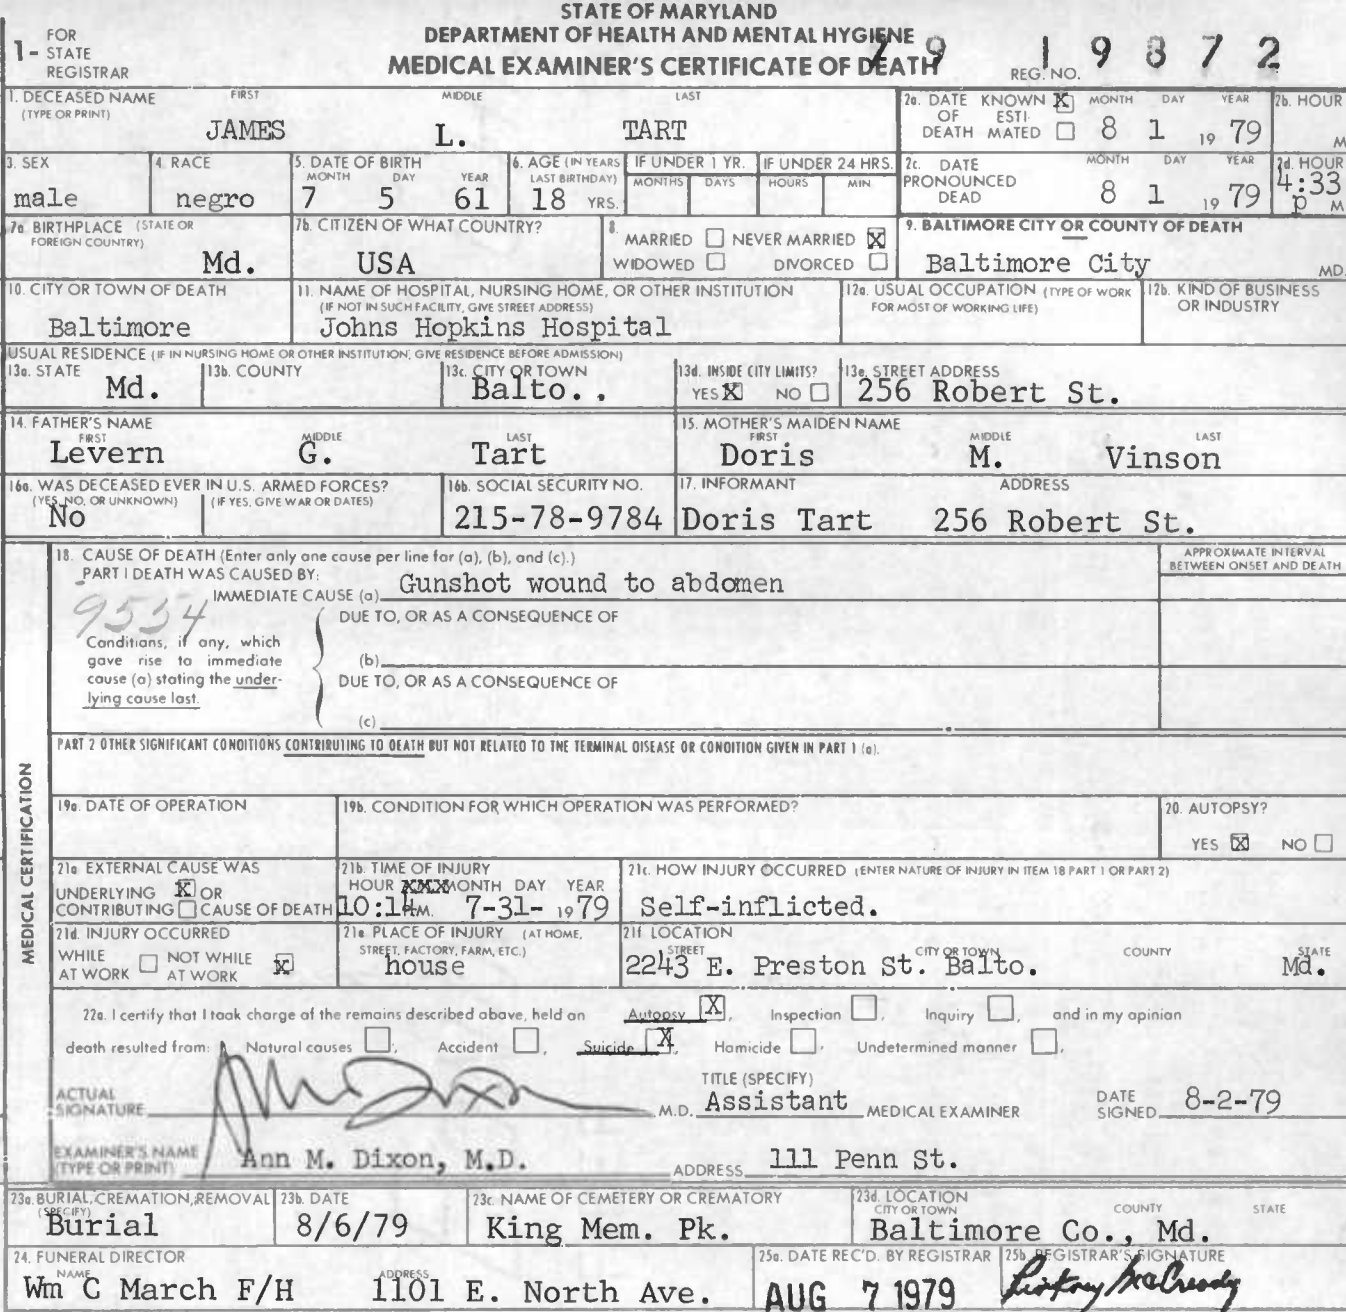 STATE OF MARYLAND
DEPARTMENT OF HEALTH AND MENTAL HYGIENE
MEDICAL EXAMINER'S CERTIFICATE OF DEATH
1- FOR STATE REGISTRAR
REG. NO. 79 19872
1. DECEASED NAME (TYPE OR PRINT) FIRST MIDDLE LAST
JAMES L. TART
2a. DATE OF DEATH KNOWN X ESTIMATED MONTH DAY YEAR 2b. HOUR
8 1 1979 M
3. SEX 4. RACE 5. DATE OF BIRTH MONTH DAY YEAR 6. AGE (IN YEARS LAST BIRTHDAY) IF UNDER 1 YR. MONTHS DAYS IF UNDER 24 HRS. HOURS MIN
male negro 7 5 61 18 YRS.
2c. DATE PRONOUNCED DEAD MONTH DAY YEAR 2d. HOUR
8 1 1979 4:33 p M
7a BIRTHPLACE (STATE OR FOREIGN COUNTRY) Md.
7b. CITIZEN OF WHAT COUNTRY? USA
8. MARRIED NEVER MARRIED X
WIDOWED DIVORCED
9. BALTIMORE CITY OR COUNTY OF DEATH
Baltimore City MD.
10. CITY OR TOWN OF DEATH
Baltimore
11. NAME OF HOSPITAL, NURSING HOME, OR OTHER INSTITUTION
(IF NOT IN SUCH FACILITY, GIVE STREET ADDRESS)
Johns Hopkins Hospital
12a. USUAL OCCUPATION (TYPE OF WORK FOR MOST OF WORKING LIFE)
12b. KIND OF BUSINESS OR INDUSTRY
USUAL RESIDENCE (IF IN NURSING HOME OR OTHER INSTITUTION, GIVE RESIDENCE BEFORE ADMISSION)
13a. STATE 13b. COUNTY 13c. CITY OR TOWN 13d. INSIDE CITY LIMITS? 13e. STREET ADDRESS
Md. Balto.. YES X NO 256 Robert St.
14. FATHER'S NAME FIRST MIDDLE LAST
Levern G. Tart
15. MOTHER'S MAIDEN NAME FIRST MIDDLE LAST
Doris M. Vinson
16a. WAS DECEASED EVER IN U.S. ARMED FORCES?
(YES, NO, OR UNKNOWN) (IF YES, GIVE WAR OR DATES)
No
16b. SOCIAL SECURITY NO.
215-78-9784
17. INFORMANT ADDRESS
Doris Tart 256 Robert St.
MEDICAL CERTIFICATION
18. CAUSE OF DEATH (Enter only one cause per line for (a), (b), and (c).)
APPROXIMATE INTERVAL BETWEEN ONSET AND DEATH
PART I DEATH WAS CAUSED BY:
IMMEDIATE CAUSE (a) Gunshot wound to abdomen
9554
DUE TO, OR AS A CONSEQUENCE OF
Conditions, if any, which gave rise to immediate cause (a) stating the underlying cause last.
(b)
DUE TO, OR AS A CONSEQUENCE OF
(c)
PART 2 OTHER SIGNIFICANT CONDITIONS CONTRIBUTING TO DEATH BUT NOT RELATED TO THE TERMINAL DISEASE OR CONDITION GIVEN IN PART 1 (a).
19a. DATE OF OPERATION
19b. CONDITION FOR WHICH OPERATION WAS PERFORMED?
20. AUTOPSY?
YES X NO
21a EXTERNAL CAUSE WAS
UNDERLYING X OR
CONTRIBUTING CAUSE OF DEATH
21b. TIME OF INJURY
HOUR XXX MONTH DAY YEAR
10:14M. 7-31- 1979
21c. HOW INJURY OCCURRED (ENTER NATURE OF INJURY IN ITEM 18 PART 1 OR PART 2)
Self-inflicted.
21d. INJURY OCCURRED
WHILE AT WORK NOT WHILE AT WORK X
21e. PLACE OF INJURY (AT HOME, STREET, FACTORY, FARM, ETC.)
house
21f. LOCATION
STREET CITY OR TOWN COUNTY STATE
2243 E. Preston St. Balto. Md.
22a. I certify that I took charge of the remains described above, held an Autopsy X, Inspection, Inquiry, and in my opinion
death resulted from: Natural causes, Accident, Suicide X, Homicide, Undetermined manner,
ACTUAL SIGNATURE Ann M Dixon M.D.
TITLE (SPECIFY)
Assistant MEDICAL EXAMINER
DATE SIGNED 8-2-79
EXAMINER'S NAME (TYPE OR PRINT) Ann M. Dixon, M.D.
ADDRESS 111 Penn St.
23a. BURIAL, CREMATION, REMOVAL (SPECIFY)
Burial
23b. DATE
8/6/79
23c. NAME OF CEMETERY OR CREMATORY
King Mem. Pk.
23d. LOCATION
CITY OR TOWN COUNTY STATE
Baltimore Co., Md.
24. FUNERAL DIRECTOR
NAME ADDRESS
Wm C March F/H 1101 E. North Ave.
25a. DATE REC'D. BY REGISTRAR
AUG 7 1979
25b. REGISTRAR'S SIGNATURE